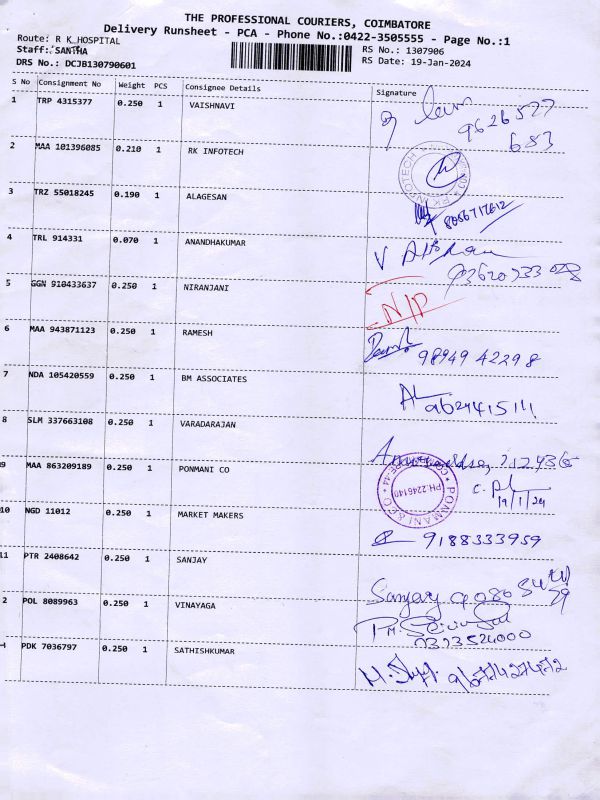 THE PROFESSIONAL COURIERS, COIMBATORE
Delivery Runsheet - PCA - Phone No.:0422-3505555 - Page No.:1
Route: R K HOSPITAL
RS No.: 1307906
Staff: SANTHA
RS Date: 19-Jan-2024
DRS No.: DCJB130790601
S No Consignment No Weight PCS Consignee Details Signature
1 TRP 4315377 0.250 1 VAISHNAVI
9626527
683
2 MAA 101396085 0.210 1 RK INFOTECH
RK INFOTECH
3 TRZ 55018245 0.190 1 ALAGESAN
4 TRL 914331 0.070 1 ANANDHAKUMAR
5 GGN 910433637 0.250 1 NIRANJANI N/P
6 MAA 943871123 0.250 1 RAMESH
98949 42298
7 NDA 105420559 0.250 1 BM ASSOCIATES
8 SLM 337663108 0.250 1 VARADARAJAN
9 MAA 863209189 0.250 1 PONMANI CO
PONMANI & CO
PH.2246140
19/1/24
10 NGD 11012 0.250 1 MARKET MAKERS
9188333959
11 PTR 2408642 0.250 1 SANJAY
Sanjay
2 POL 8089963 0.250 1 VINAYAGA
PDK 7036797 0.250 1 SATHISHKUMAR